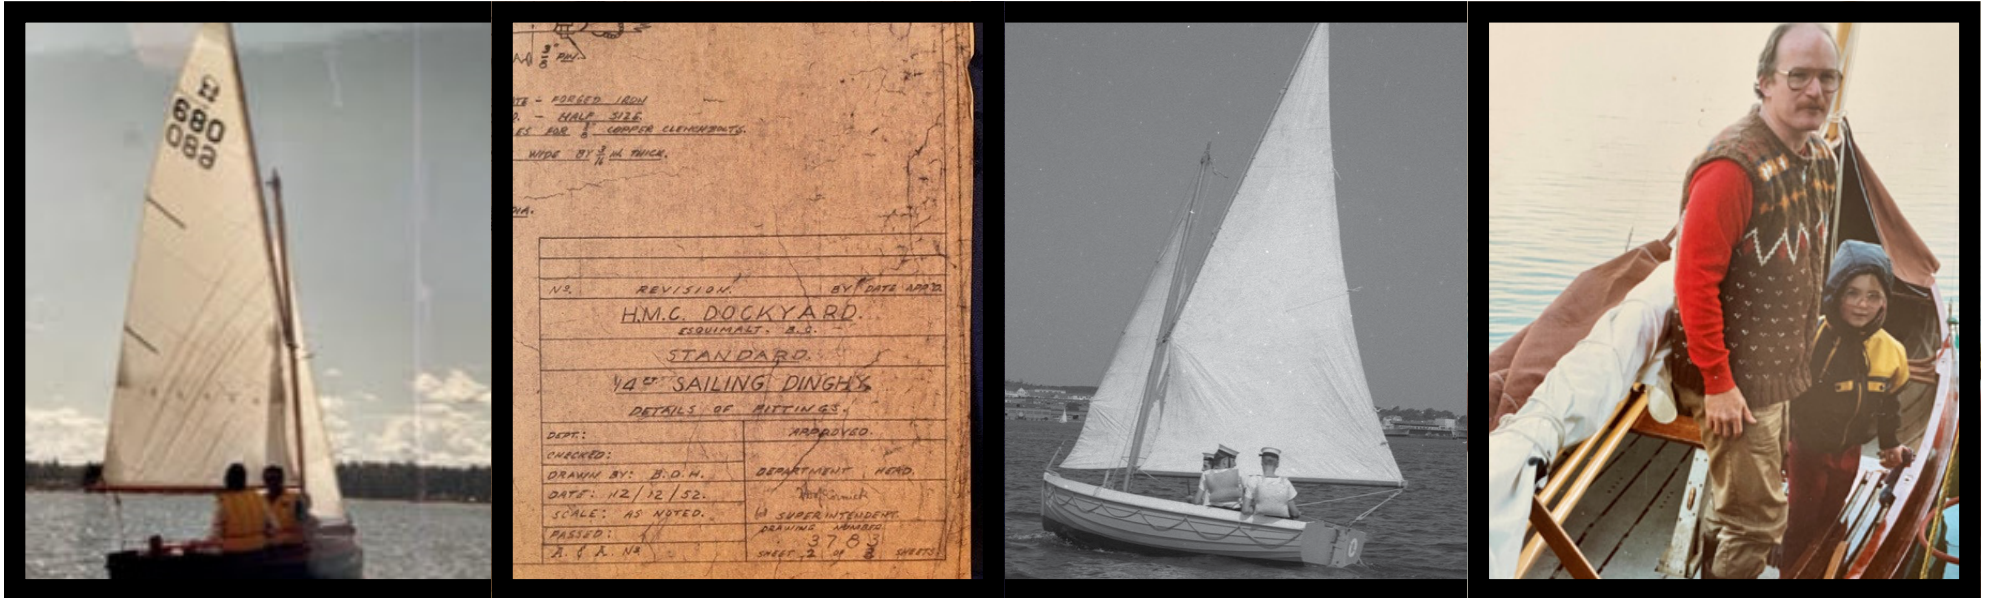 680
089
3/8" PIN.
FORGED IRON
HALF SIZE
ES FOR 3/8 COPPER CLENCHBOLTS.
WIDE BY 3/16 IN. THICK.
DIA.
NO. REVISION. BY DATE APP'D.
H.M.C. DOCKYARD.
ESQUIMALT. B.C.
STANDARD.
14 FT SAILING DINGHY.
DETAILS OF FITTINGS.
DEPT.:
CHECKED:
DRAWN BY: B.D.H.
DATE: 12/12/52.
SCALE: AS NOTED.
PASSED:
A. & A. NO.
APPROVED.
DEPARTMENT HEAD.
SUPERINTENDENT.
DRAWING NUMBER
3783
SHEET 2 OF 3 SHEETS.